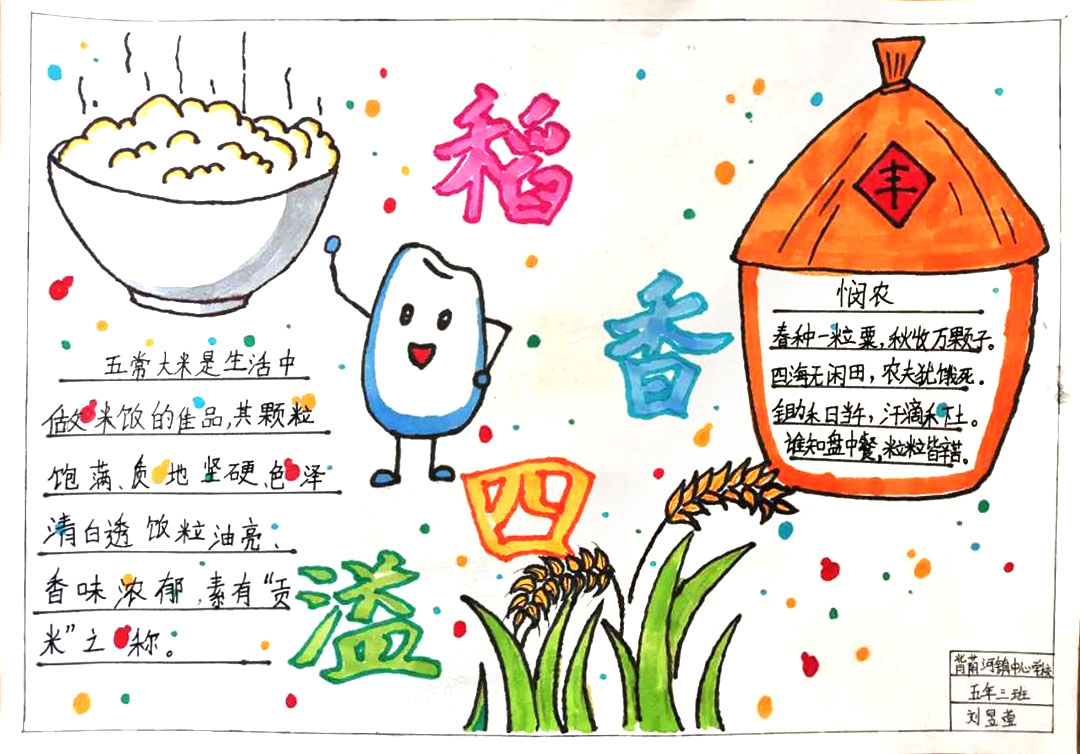 稻
香
四
溢
丰
悯农
春种一粒粟,秋收万颗子。
四海无闲田,农夫犹饿死。
锄禾日当午,汗滴禾下土。
谁知盘中餐,粒粒皆辛苦。
五常大米是生活中
做米饭的佳品,其颗粒
饱满、质地坚硬、色泽
清白透 饭粒油亮、
香味浓郁,素有“贡
米”之称。
背荫河镇中心学校
五年三班
刘昱莹